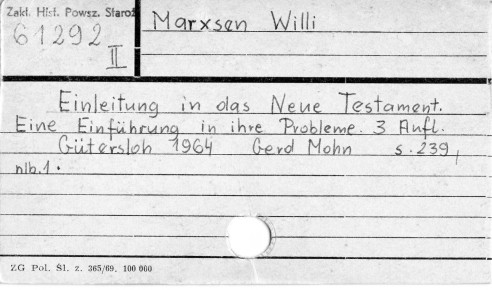 Zakł. Hist. Powsz. Staroż
61292
II
Marxsen Willi
Einleitung in das Neue Testament.
Eine Einführung in ihre Probleme. 3 Aufl.
Gütersloh 1964 Gerd Mohn s. 239,
nlb. 1.
ZG Pol. Śl. z. 365/69. 100 000